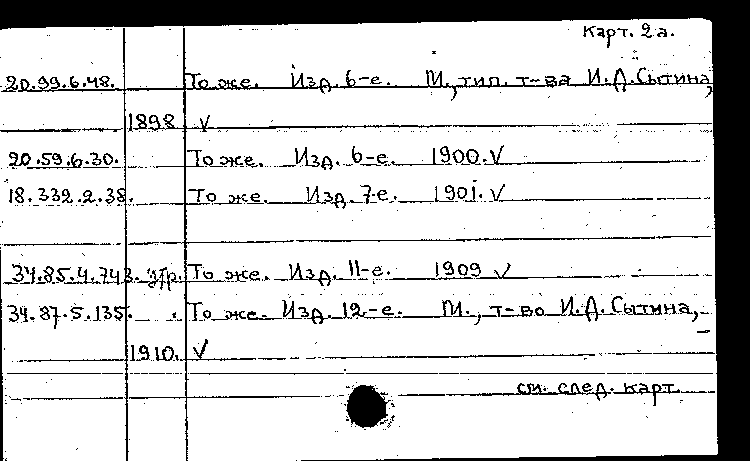 Карт. 2а.
20.99.6.48. То же. Изд. 6-е. М., тип. т-ва И.Д.Сытина,
1898 V
20.59.6.30. То же. Изд. 6-е. 1900. V
18.332.2.38. То же. Изд. 7-е. 1901. V
34.85.4.743. утр. То же. Изд. 11-е. 1909 V
34.87.5.135. То же. Изд. 12-е. М., т-во И.Д.Сытина,
1910. V
см. след. карт.